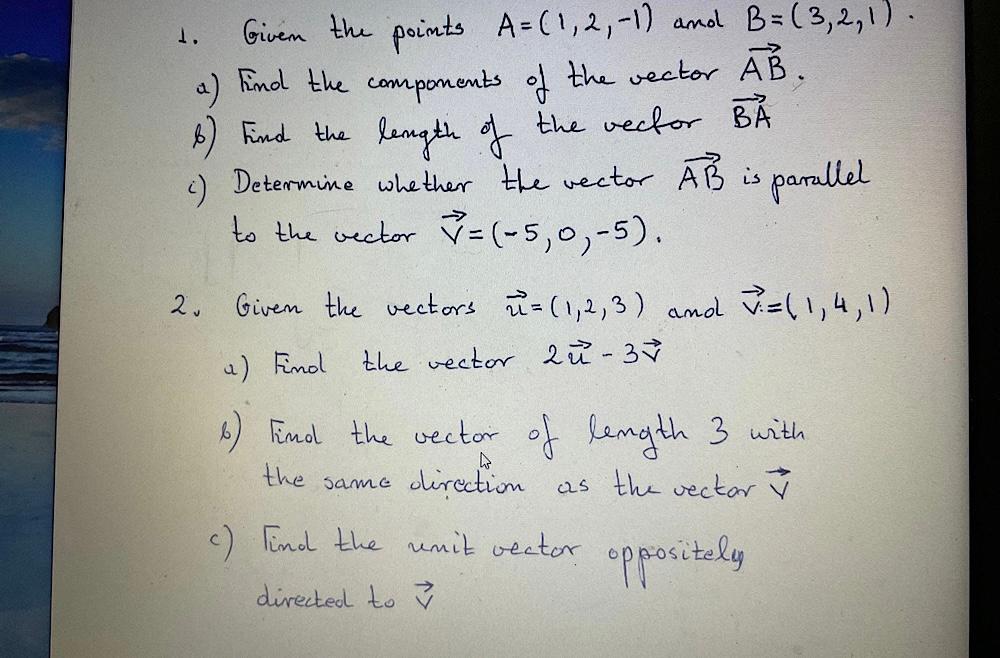 1. Given the points A=(1,2,-1) and B=(3,2,1).
a) Find the components of the vector $\overrightarrow{AB}$.
b) Find the length of the vector $\overrightarrow{BA}$
c) Determine whether the vector $\overrightarrow{AB}$ is parallel
to the vector $\vec{V}$=(-5,0,-5).
2. Given the vectors $\vec{u}$=(1,2,3) and $\vec{v}$=(1,4,1)
a) Find the vector 2$\vec{u}$-3$\vec{v}$
b) Find the vector of length 3 with
the same direction as the vector $\vec{v}$
c) Find the unit vector oppositely
directed to $\vec{v}$